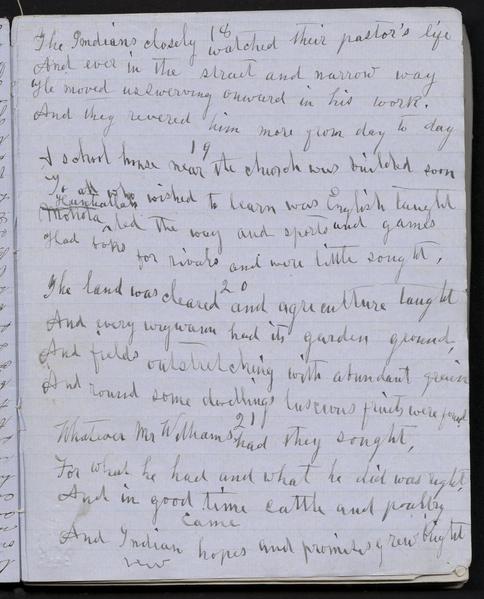 18
The Indians closely watched their pastor's life
And ever in the strait and narrow way
He moved unswerving onward in his work.
And they revered him more from day to day
19
A school house near the church was builded soon
To all who wished to learn was English taught
led the way and sports and games
Had books for rivals and were little sought,
20
The land was cleared and agriculture taught
And every wigwam had its garden ground,
And fields outstretching with abundant grain
And round some dwellings luscious fruits were found
21
Whatever Mr Williams had they sought,
For what he had and what he did was right,
And in good time cattle and poultry
came
And Indian hopes and promises grew bright
new